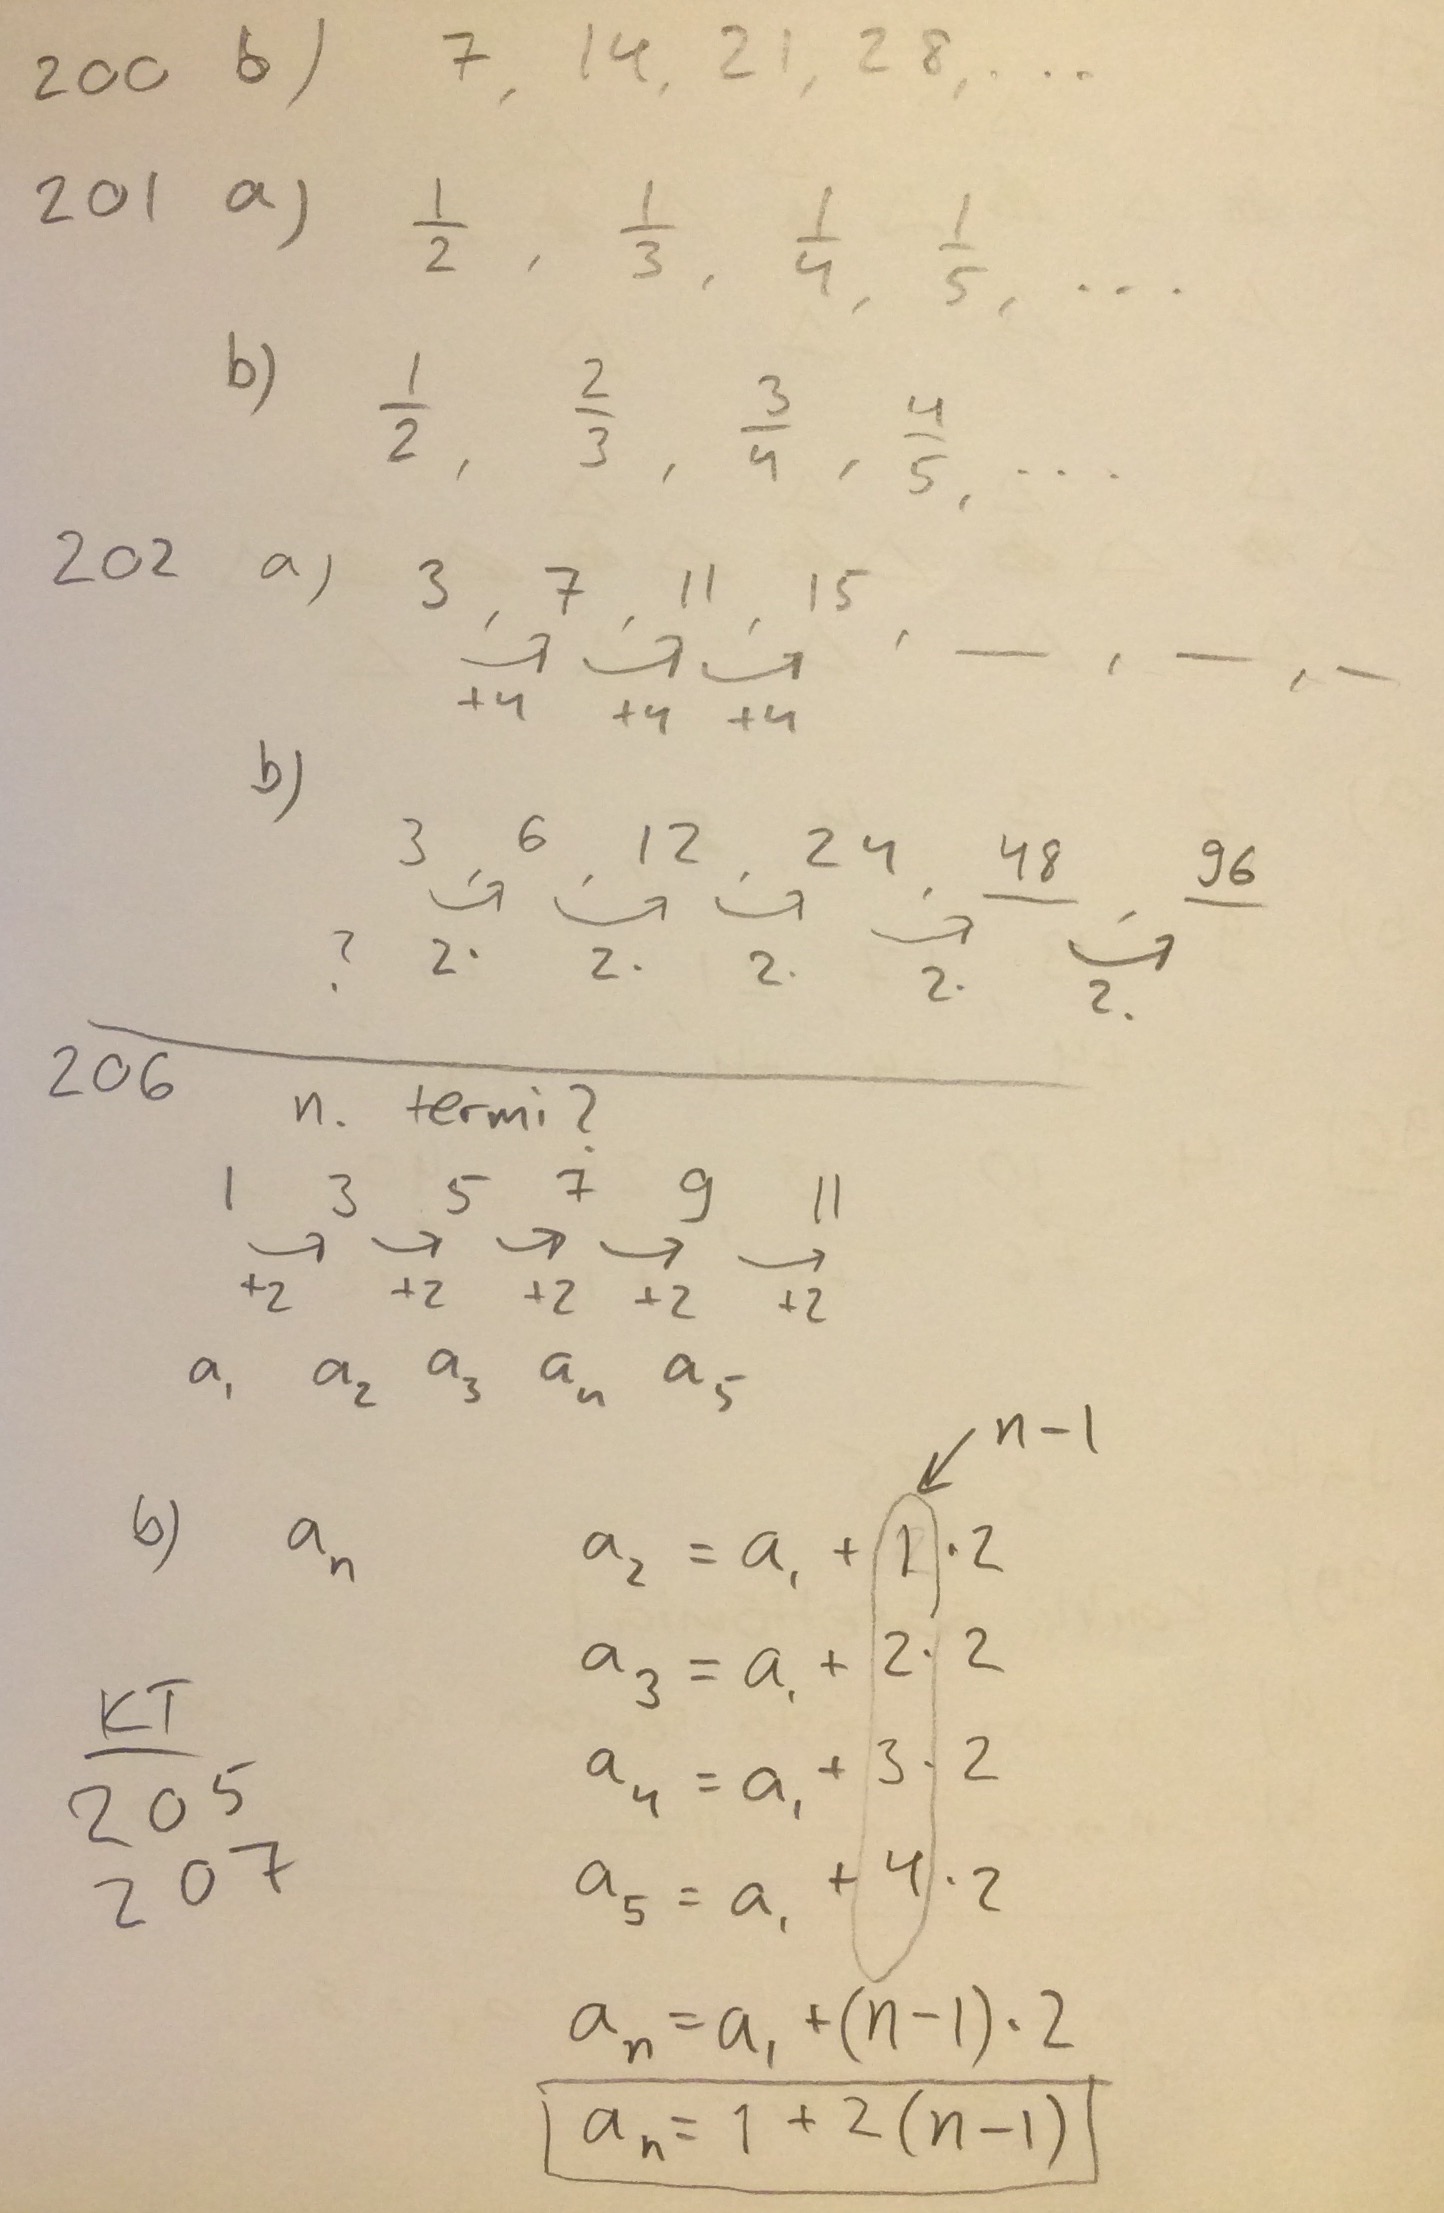 200 b) 7, 14, 21, 28, ...
201 a) 1/2, 1/3, 1/4, 1/5, ...
b) 1/2, 2/3, 3/4, 4/5, ...
202 a) 3, 7, 11, 15, _, _, _
+4 +4 +4
b)
3, 6, 12, 24, 48, 96
? 2· 2· 2· 2· 2·
206
n. termi?
1 3 5 7 9 11
+2 +2 +2 +2 +2
a₁ a₂ a₃ a₄ a₅
n-1
b) aₙ a₂ = a₁ + 1·2
a₃ = a₁ + 2·2
KT
a₄ = a₁ + 3·2
205
207
a₅ = a₁ + 4·2
aₙ = a₁ + (n-1)·2
aₙ = 1 + 2(n-1)